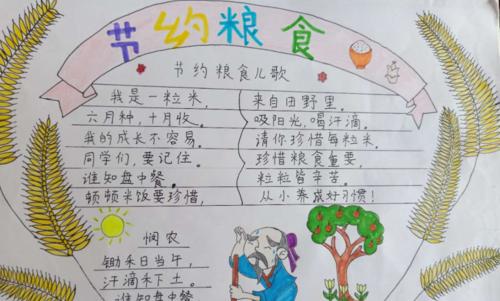 节约粮食
节约粮食儿歌
我是一粒米，
六月种，十月收。
我的成长不容易。
同学们，要记住。
谁知盘中餐。
顿顿米饭要珍惜，
来自田野里。
吸阳光，喝汗滴。
请你珍惜每粒米。
珍惜粮食重要，
粒粒皆辛苦。
从小养成好习惯！
悯农
锄禾日当午，
汗滴禾下土。
谁知盘中餐